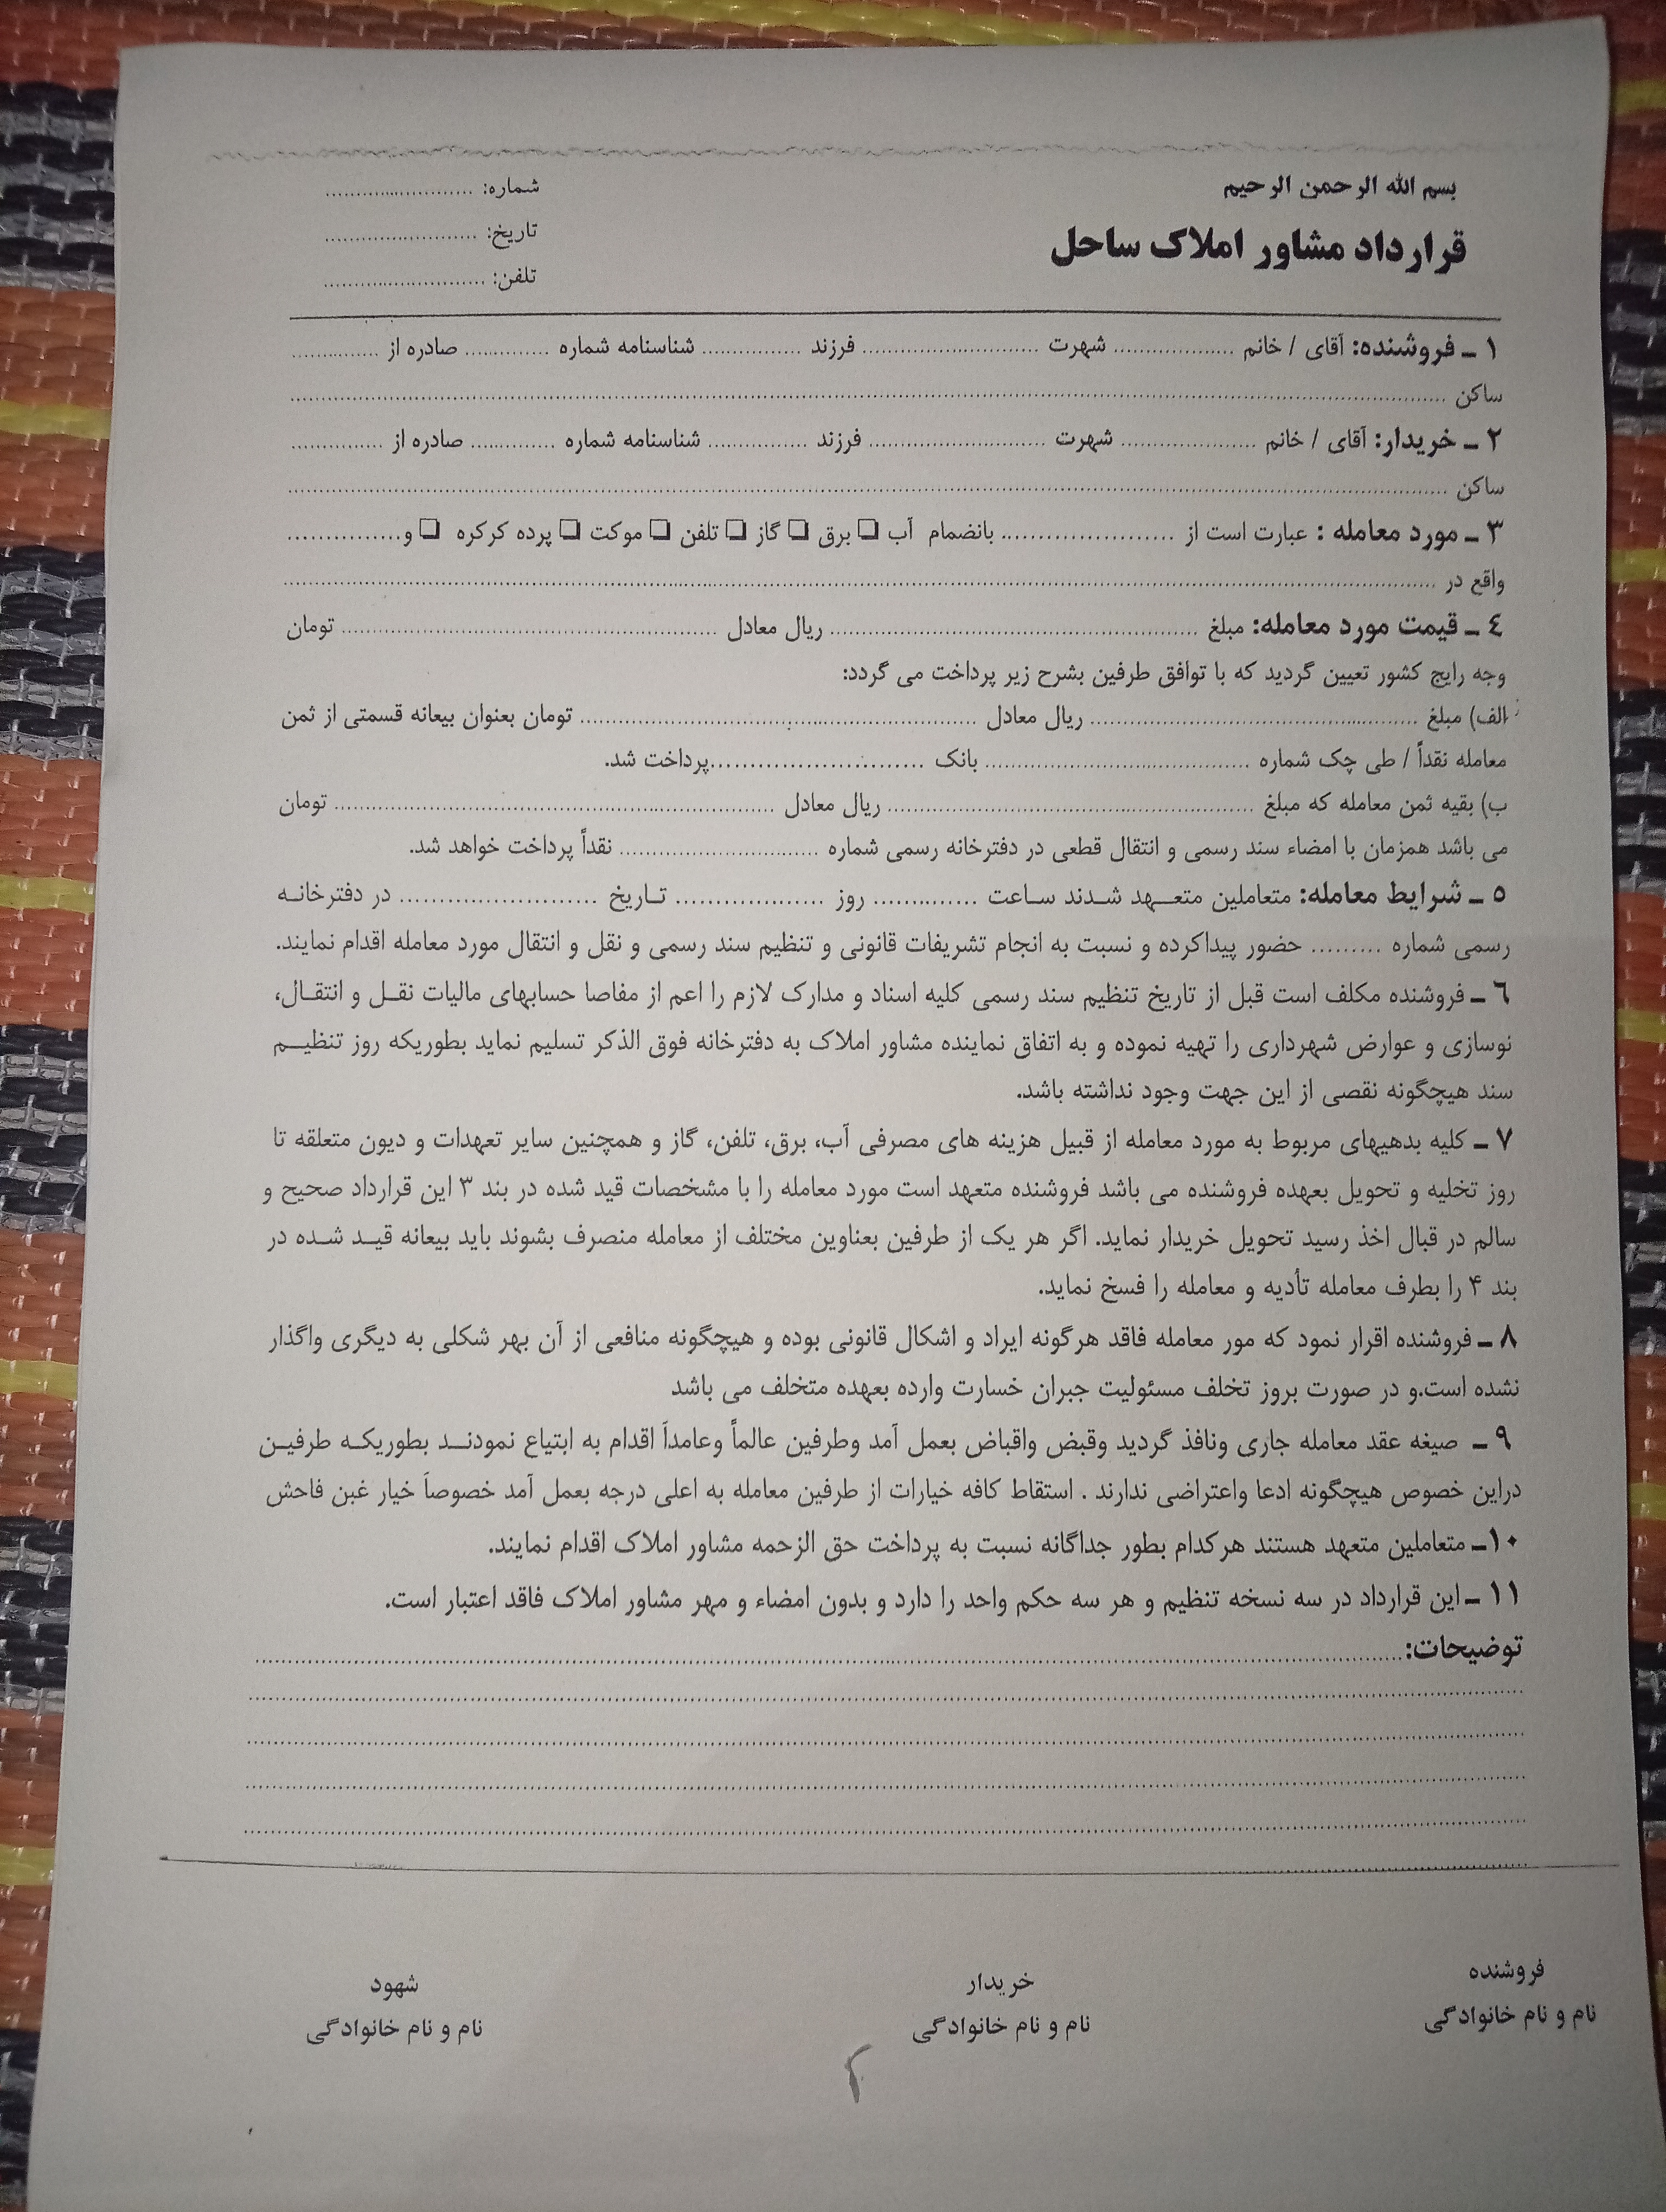 بسم الله الرحمن الرحیم
قرارداد مشاور املاک ساحل
شماره: ........................
تاریخ: ........................
تلفن: ........................
۱ ـ فروشنده: آقای / خانم .................. شهرت .......................... فرزند ............... شناسنامه شماره ............. صادره از ..............
ساکن ................................................................................
۲ ـ خریدار: آقای / خانم .................. شهرت .......................... فرزند ............... شناسنامه شماره ............. صادره از ..............
ساکن ................................................................................
۳ ـ مورد معامله : عبارت است از ...................... بانضمام آب ❏ برق ❏ گاز ❏ تلفن ❏ موکت ❏ پرده کرکره ❏ و................
واقع در ................................................................................
٤ ـ قیمت مورد معامله: مبلغ ........................................ ریال معادل ........................................ تومان
وجه رایج کشور تعیین گردید که با توافق طرفین بشرح زیر پرداخت می گردد:
الف) مبلغ ........................................ ریال معادل ........................................ تومان بعنوان بیعانه قسمتی از ثمن
معامله نقداً / طی چک شماره ........................................ بانک ............................پرداخت شد.
ب) بقیه ثمن معامله که مبلغ ........................................ ریال معادل ........................................ تومان
می باشد همزمان با امضاء سند رسمی و انتقال قطعی در دفترخانه رسمی شماره ............................ نقداً پرداخت خواهد شد.
۵ ـ شرایط معامله: متعاملین متعـــهد شــدند ســاعت .............. روز .................... تــاریخ .......................... در دفترخانــه
رسمی شماره ......... حضور پیداکرده و نسبت به انجام تشریفات قانونی و تنظیم سند رسمی و نقل و انتقال مورد معامله اقدام نمایند.
٦ ـ فروشنده مکلف است قبل از تاریخ تنظیم سند رسمی کلیه اسناد و مدارک لازم را اعم از مفاصا حسابهای مالیات نقــل و انتقــال،
نوسازی و عوارض شهرداری را تهیه نموده و به اتفاق نماینده مشاور املاک به دفترخانه فوق الذکر تسلیم نماید بطوریکه روز تنظیـــم
سند هیچگونه نقصی از این جهت وجود نداشته باشد.
۷ ـ کلیه بدهیهای مربوط به مورد معامله از قبیل هزینه های مصرفی آب، برق، تلفن، گاز و همچنین سایر تعهدات و دیون متعلقه تا
روز تخلیه و تحویل بعهده فروشنده می باشد فروشنده متعهد است مورد معامله را با مشخصات قید شده در بند ۳ این قرارداد صحیح و
سالم در قبال اخذ رسید تحویل خریدار نماید. اگر هر یک از طرفین بعناوین مختلف از معامله منصرف بشوند باید بیعانه قیــد شــده در
بند ۴ را بطرف معامله تأدیه و معامله را فسخ نماید.
۸ ـ فروشنده اقرار نمود که مور معامله فاقد هرگونه ایراد و اشکال قانونی بوده و هیچگونه منافعی از آن بهر شکلی به دیگری واگذار
نشده است.و در صورت بروز تخلف مسئولیت جبران خسارت وارده بعهده متخلف می باشد
۹ ـ صیغه عقد معامله جاری ونافذ گردید وقبض واقباض بعمل آمد وطرفین عالماً وعامداً اقدام به ابتیاع نمودنــد بطوریکــه طرفیــن
دراین خصوص هیچگونه ادعا واعتراضی ندارند . استقاط کافه خیارات از طرفین معامله به اعلی درجه بعمل آمد خصوصاً خیار غبن فاحش
۱۰ـ متعاملین متعهد هستند هرکدام بطور جداگانه نسبت به پرداخت حق الزحمه مشاور املاک اقدام نمایند.
۱۱ ـ این قرارداد در سه نسخه تنظیم و هر سه حکم واحد را دارد و بدون امضاء و مهر مشاور املاک فاقد اعتبار است.
توضیحات:................................................................................
فروشنده
نام و نام خانوادگی
خریدار
نام و نام خانوادگی
شهود
نام و نام خانوادگی
۲